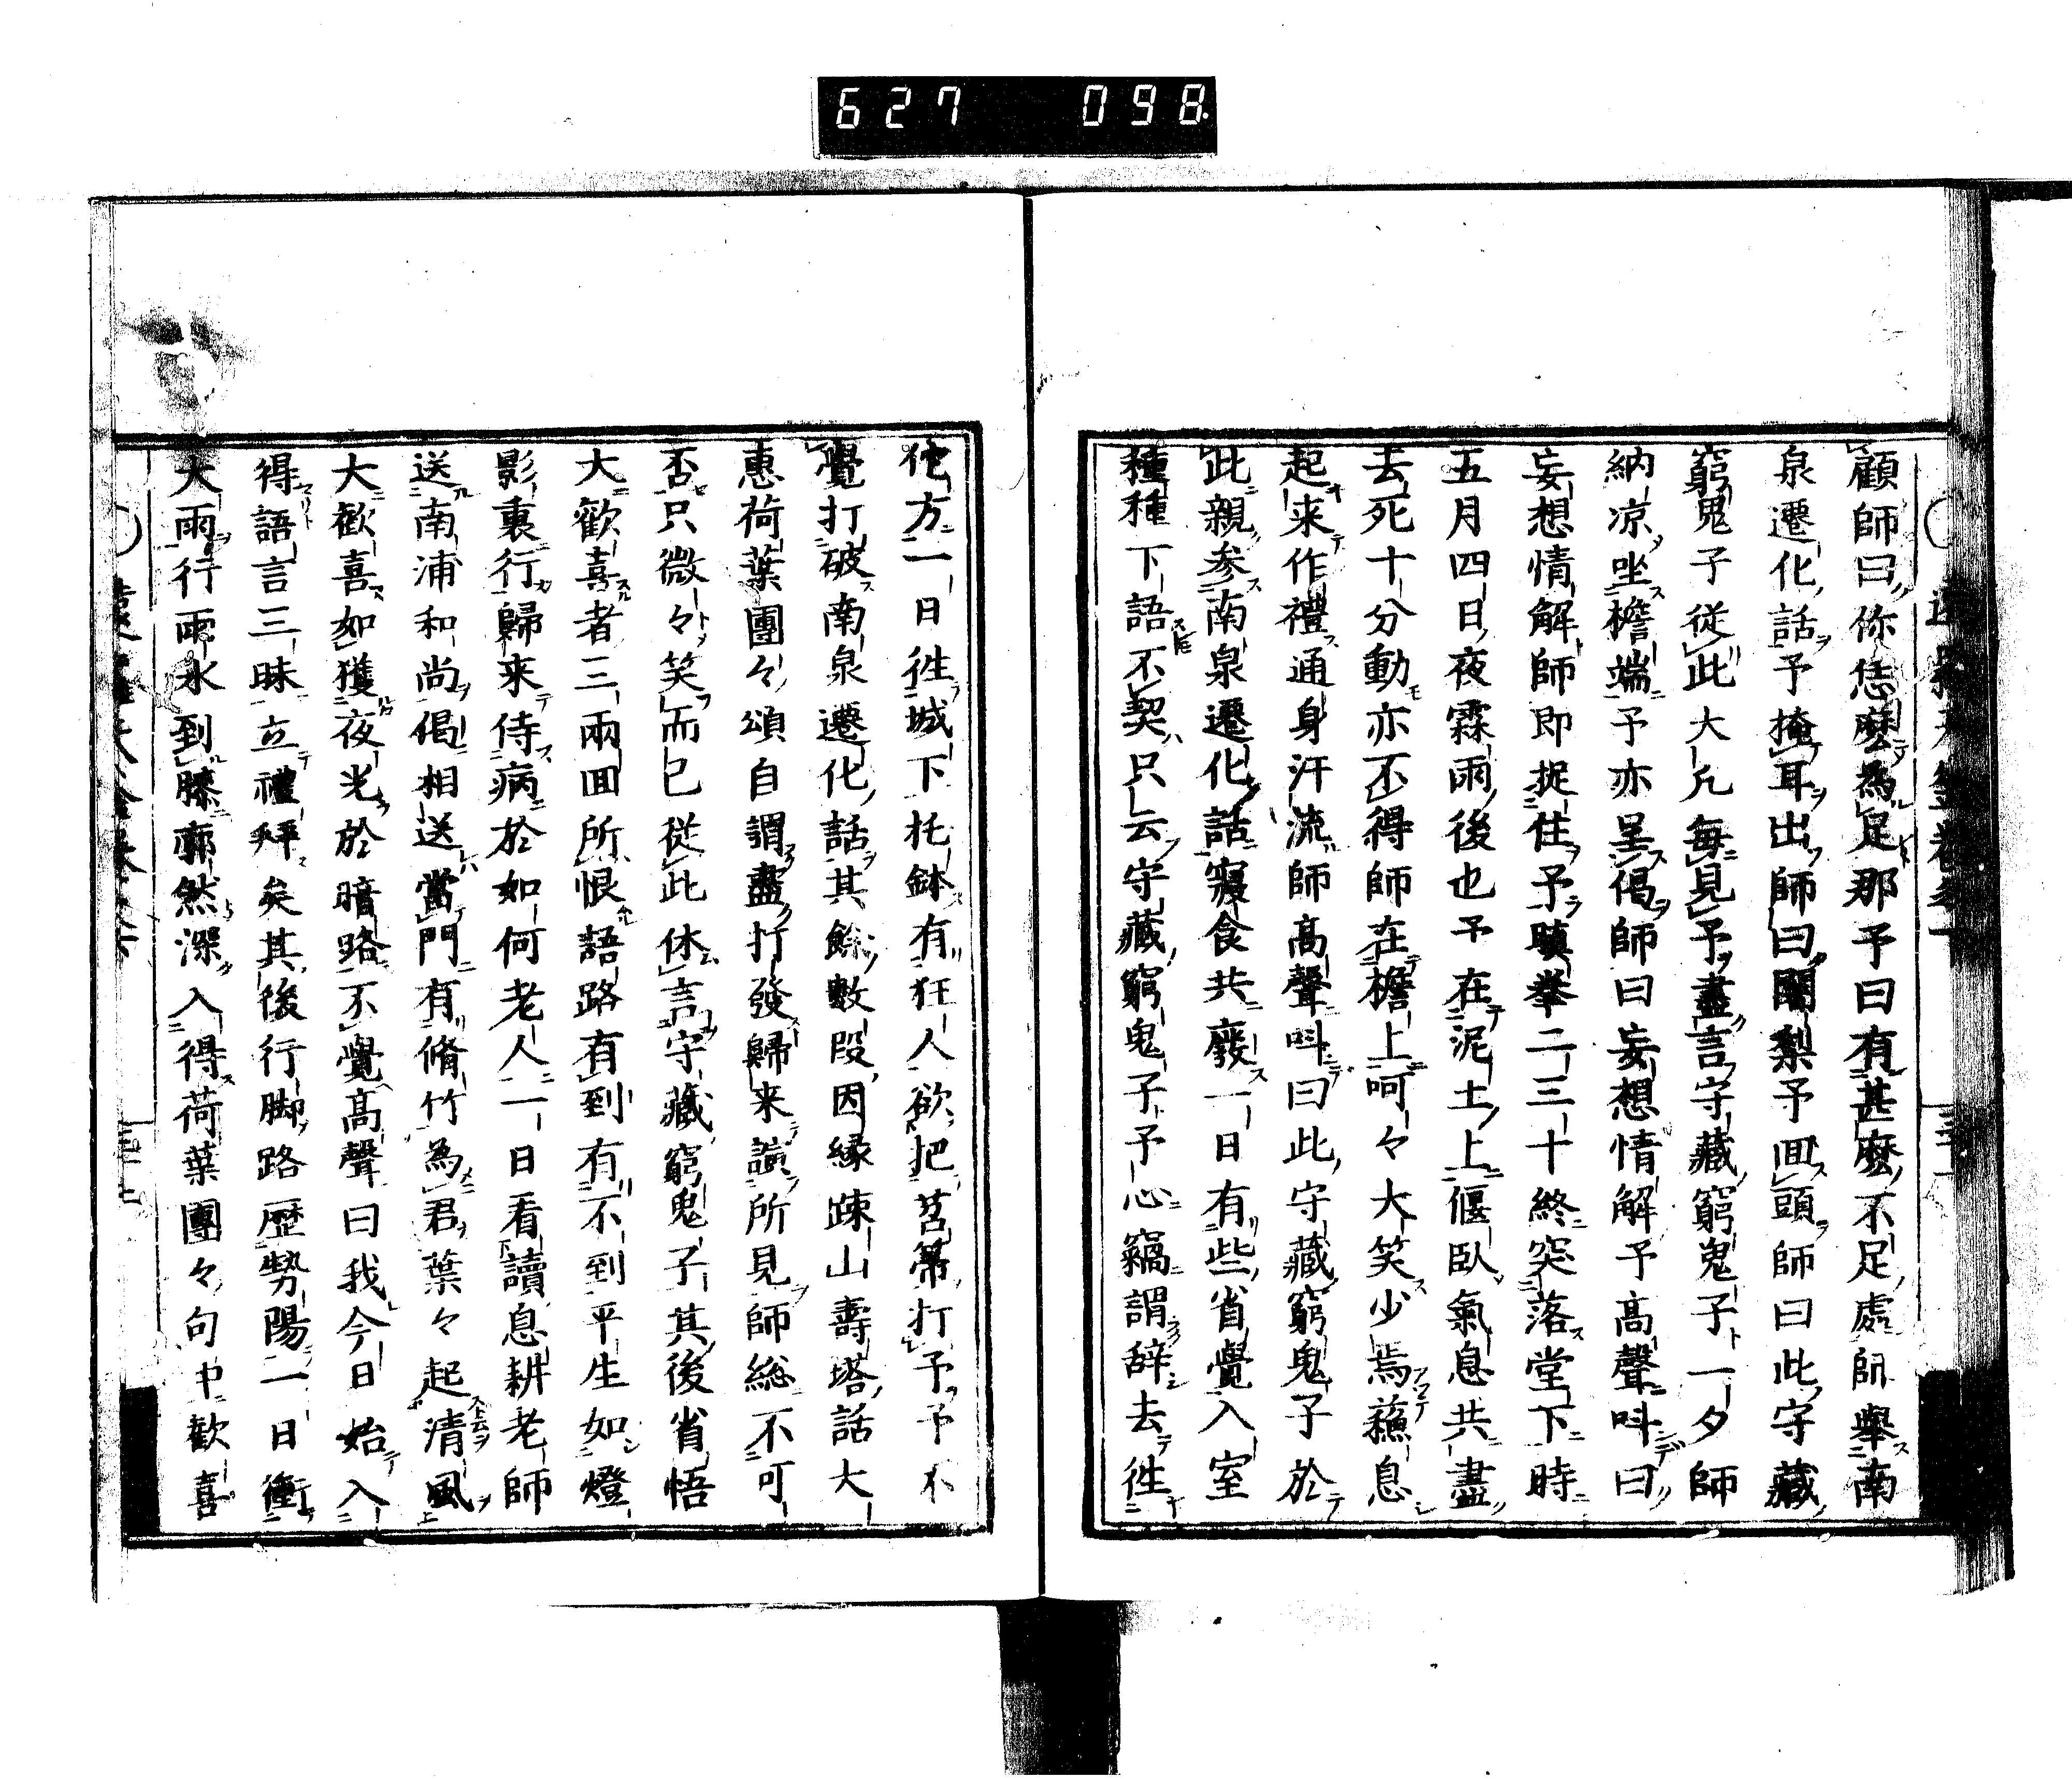 627 098
顧師曰你恁麼為足那予曰有甚麼不足處師舉南
泉遷化話予掩耳出師曰闍梨予囬頭師曰此守藏
窮鬼子從此大凡每見予盡言守藏窮鬼子一夕師
納凉坐檐端予亦呈偈師曰妄想情解予高聲呌曰
妄想情解師即捉住予瞋拳二三十終突落堂下時
五月四日夜霖雨後也予在泥土上偃臥氣息共盡
去死十分動亦不得師在檐上呵々大笑少焉蘓息
起来作禮通身汗流師高聲呌曰此守藏窮鬼子於
此親参南泉遷化話寢食共廢一日有些省覺入室
種種下語不契只云守藏窮鬼子予心竊謂辞去徃
他方一日徃城下托鉢有狂人欲把苕箒打予予不
覺打破南泉遷化話其餘數段因縁疎山壽塔話大
惠荷葉團々頌自謂盡打發歸来說所見師総不可
否只微々笑而已從此休言守藏窮鬼子其後省悟
大歡喜者三兩囬所恨語路有到有不到平生如燈
影裏行歸来侍病於如何老人一日看讀息耕老師
送南浦和尚偈相送當門有脩竹為君葉々起清風
大歡喜如獲夜光於暗路不覺高聲曰我今日始入
得語言三昧立禮拜矣其後行脚路歴勢陽一日衝
大雨行雨水到膝廓然深入得荷葉團々句中歡喜